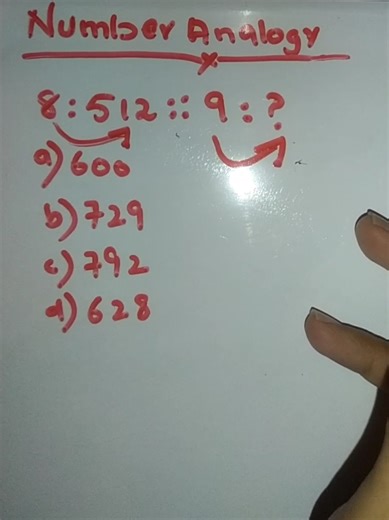 Number Analogy
8 : 512 :: 9 : ?
a) 600
b) 729
c) 792
d) 628